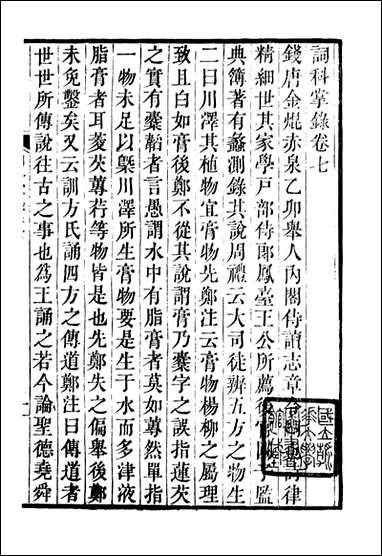 詞科掌錄卷七
錢唐金焜赤泉乙卯舉人內閣侍讀志章
精細世其家學戸部侍郎鳳臺王公所薦後官國子監
典簿著有蠡測錄其說周禮云大司徒辨五方之物生
二曰川澤其植物宜膏物先鄭注云膏物楊柳之屬理
致且白如膏後鄭不從其說謂膏乃櫜字之誤指蓮芡
之實有櫜韜者言愚謂水中有脂膏者莫如蓴然單指
一物未足以槩川澤所生膏物要是生于水而多津液
脂膏者耳菱芡蓴荇等物皆是也先鄭失之偏舉後鄭
未免鑿矣又云訓方氏誦四方之傳道鄭注曰傳道者
世世所傳說往古之事也為王誦之若今論聖德堯舜